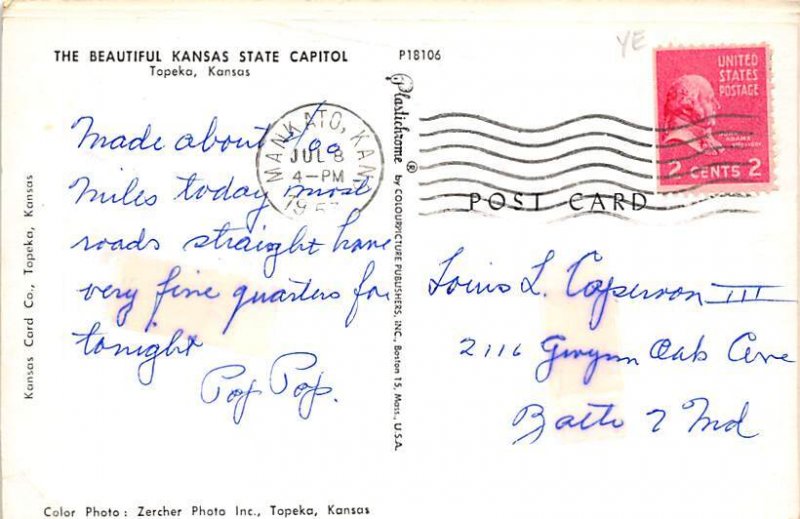 THE BEAUTIFUL KANSAS STATE CAPITOL
Topeka, Kansas
P18106
YE
UNITED
STATES
POSTAGE
2 CENTS 2
MANKATO, KAN
JUL 8
4-PM
POST CARD
Made about
miles today most
roads straight have
very fine quarters for
tonight
Pop Pop.
Louis L. III
2116 Gwynn Oak Ave
Balto 7 Md
Plastichrome ® by COLOURPICTURE PUBLISHERS, INC., Boston 15, Mass., U.S.A.
Kansas Card Co., Topeka, Kansas
Color Photo: Zercher Photo Inc., Topeka, Kansas